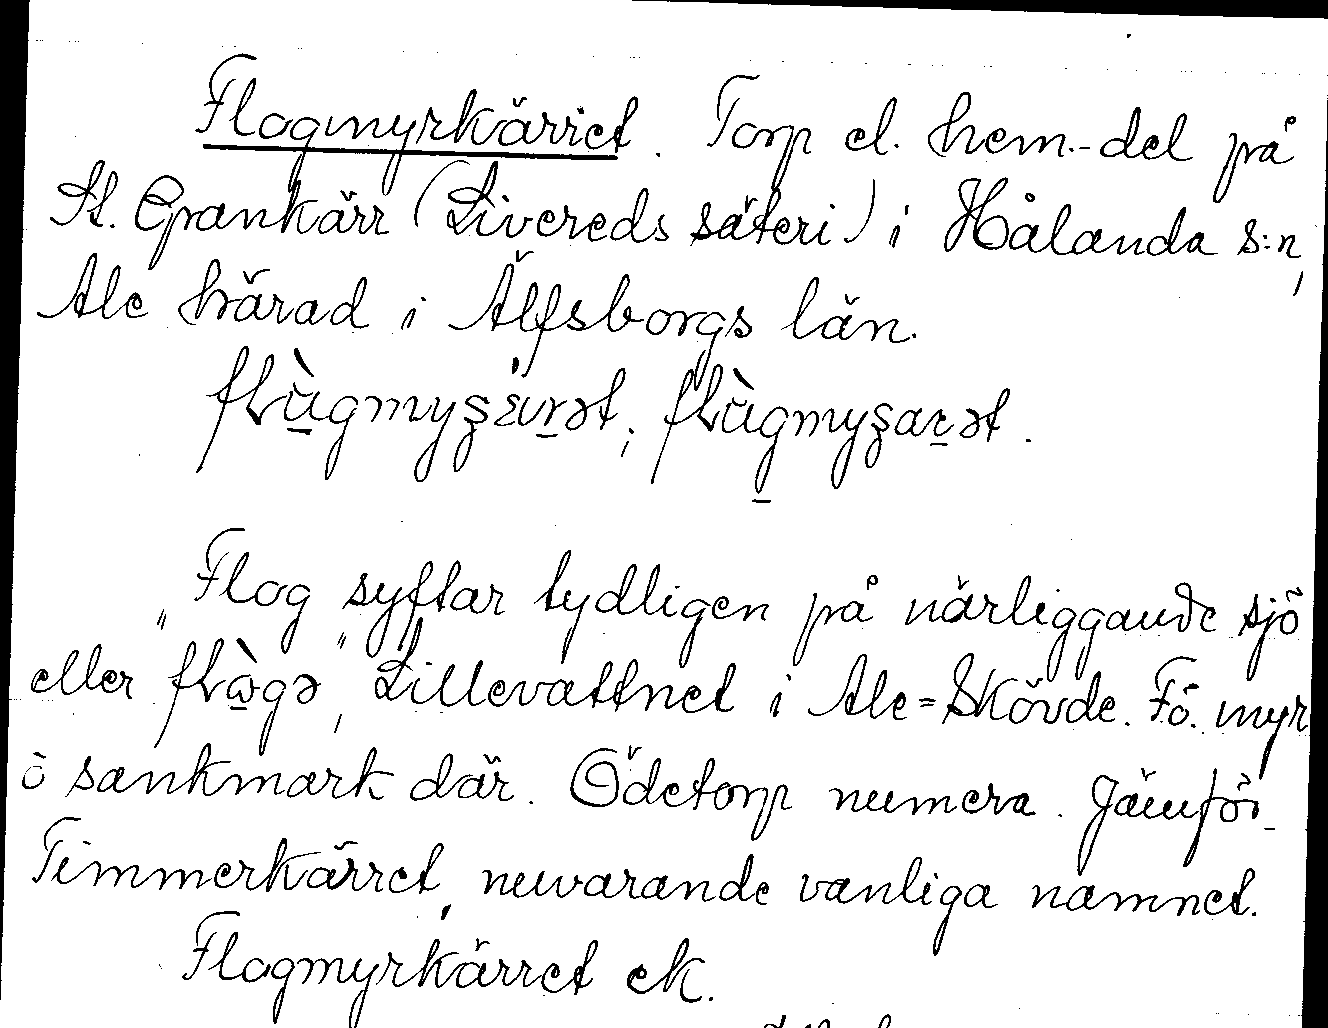 Flogmyrkärret. Torp el. hem.-del på
St. Grankärr (Livereds säteri) i Hålanda s:n,
Ale härad i Älfsborgs län.
"Flog" syftar tydligen på närliggande sjö
eller Lillevattnet i Ale=Skövde. Fö. myr
o sankmark där. Ödetorp numera. Jämför
Timmerkärret, nuvarande vanliga namnet.
Flogmyrkärret ek.